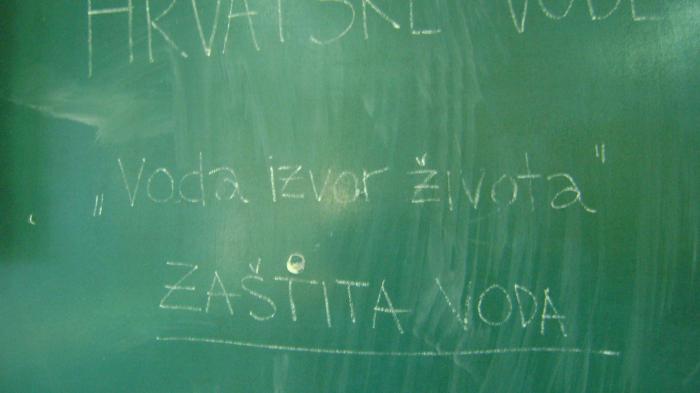 HRVATSKE VODE
„Voda izvor života"
ZAŠTITA VODA